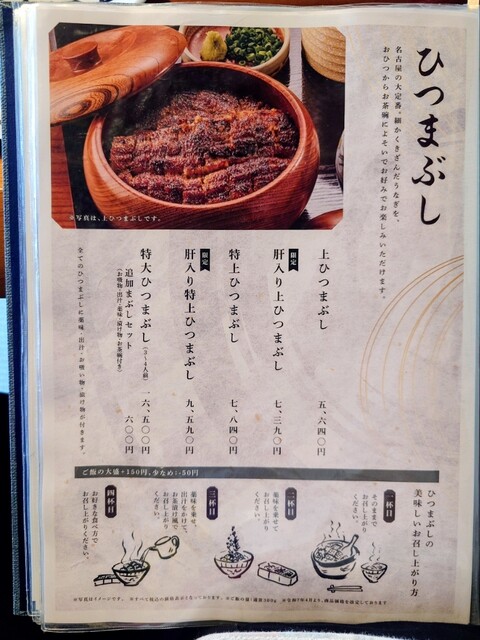 ひつまぶし
名古屋の大定番。細かくきざんだうなぎを、
おひつからお茶碗によそいでお好みでお楽しみいただけます。
※写真は、上ひつまぶしです。
上ひつまぶし 五、六四〇円
限定
肝入り上ひつまぶし 七、三九〇円
特上ひつまぶし 七、八四〇円
限定
肝入り特上ひつまぶし 九、五九〇円
特大ひつまぶし(3〜4人前) 一六、五〇〇円
追加まぶしセット 六〇〇円
(お吸物・出汁・薬味・漬け物・お茶碗付き)
全てのひつまぶしに薬味・出汁・お吸い物・漬け物が付きます。
ご飯の大盛+150円、少なめ:-50円
ひつまぶしの
美味しいお召し上がり方
一杯目
そのままで
お召し上がり
ください。
二杯目
薬味を乗せて
お召し上がり
ください。
三杯目
薬味を乗せ、
出汁をかけて、
お茶漬け風で
お召し上がり
ください。
四杯目
お好きな食べ方で
お召し上がりください。
※写真はイメージです。